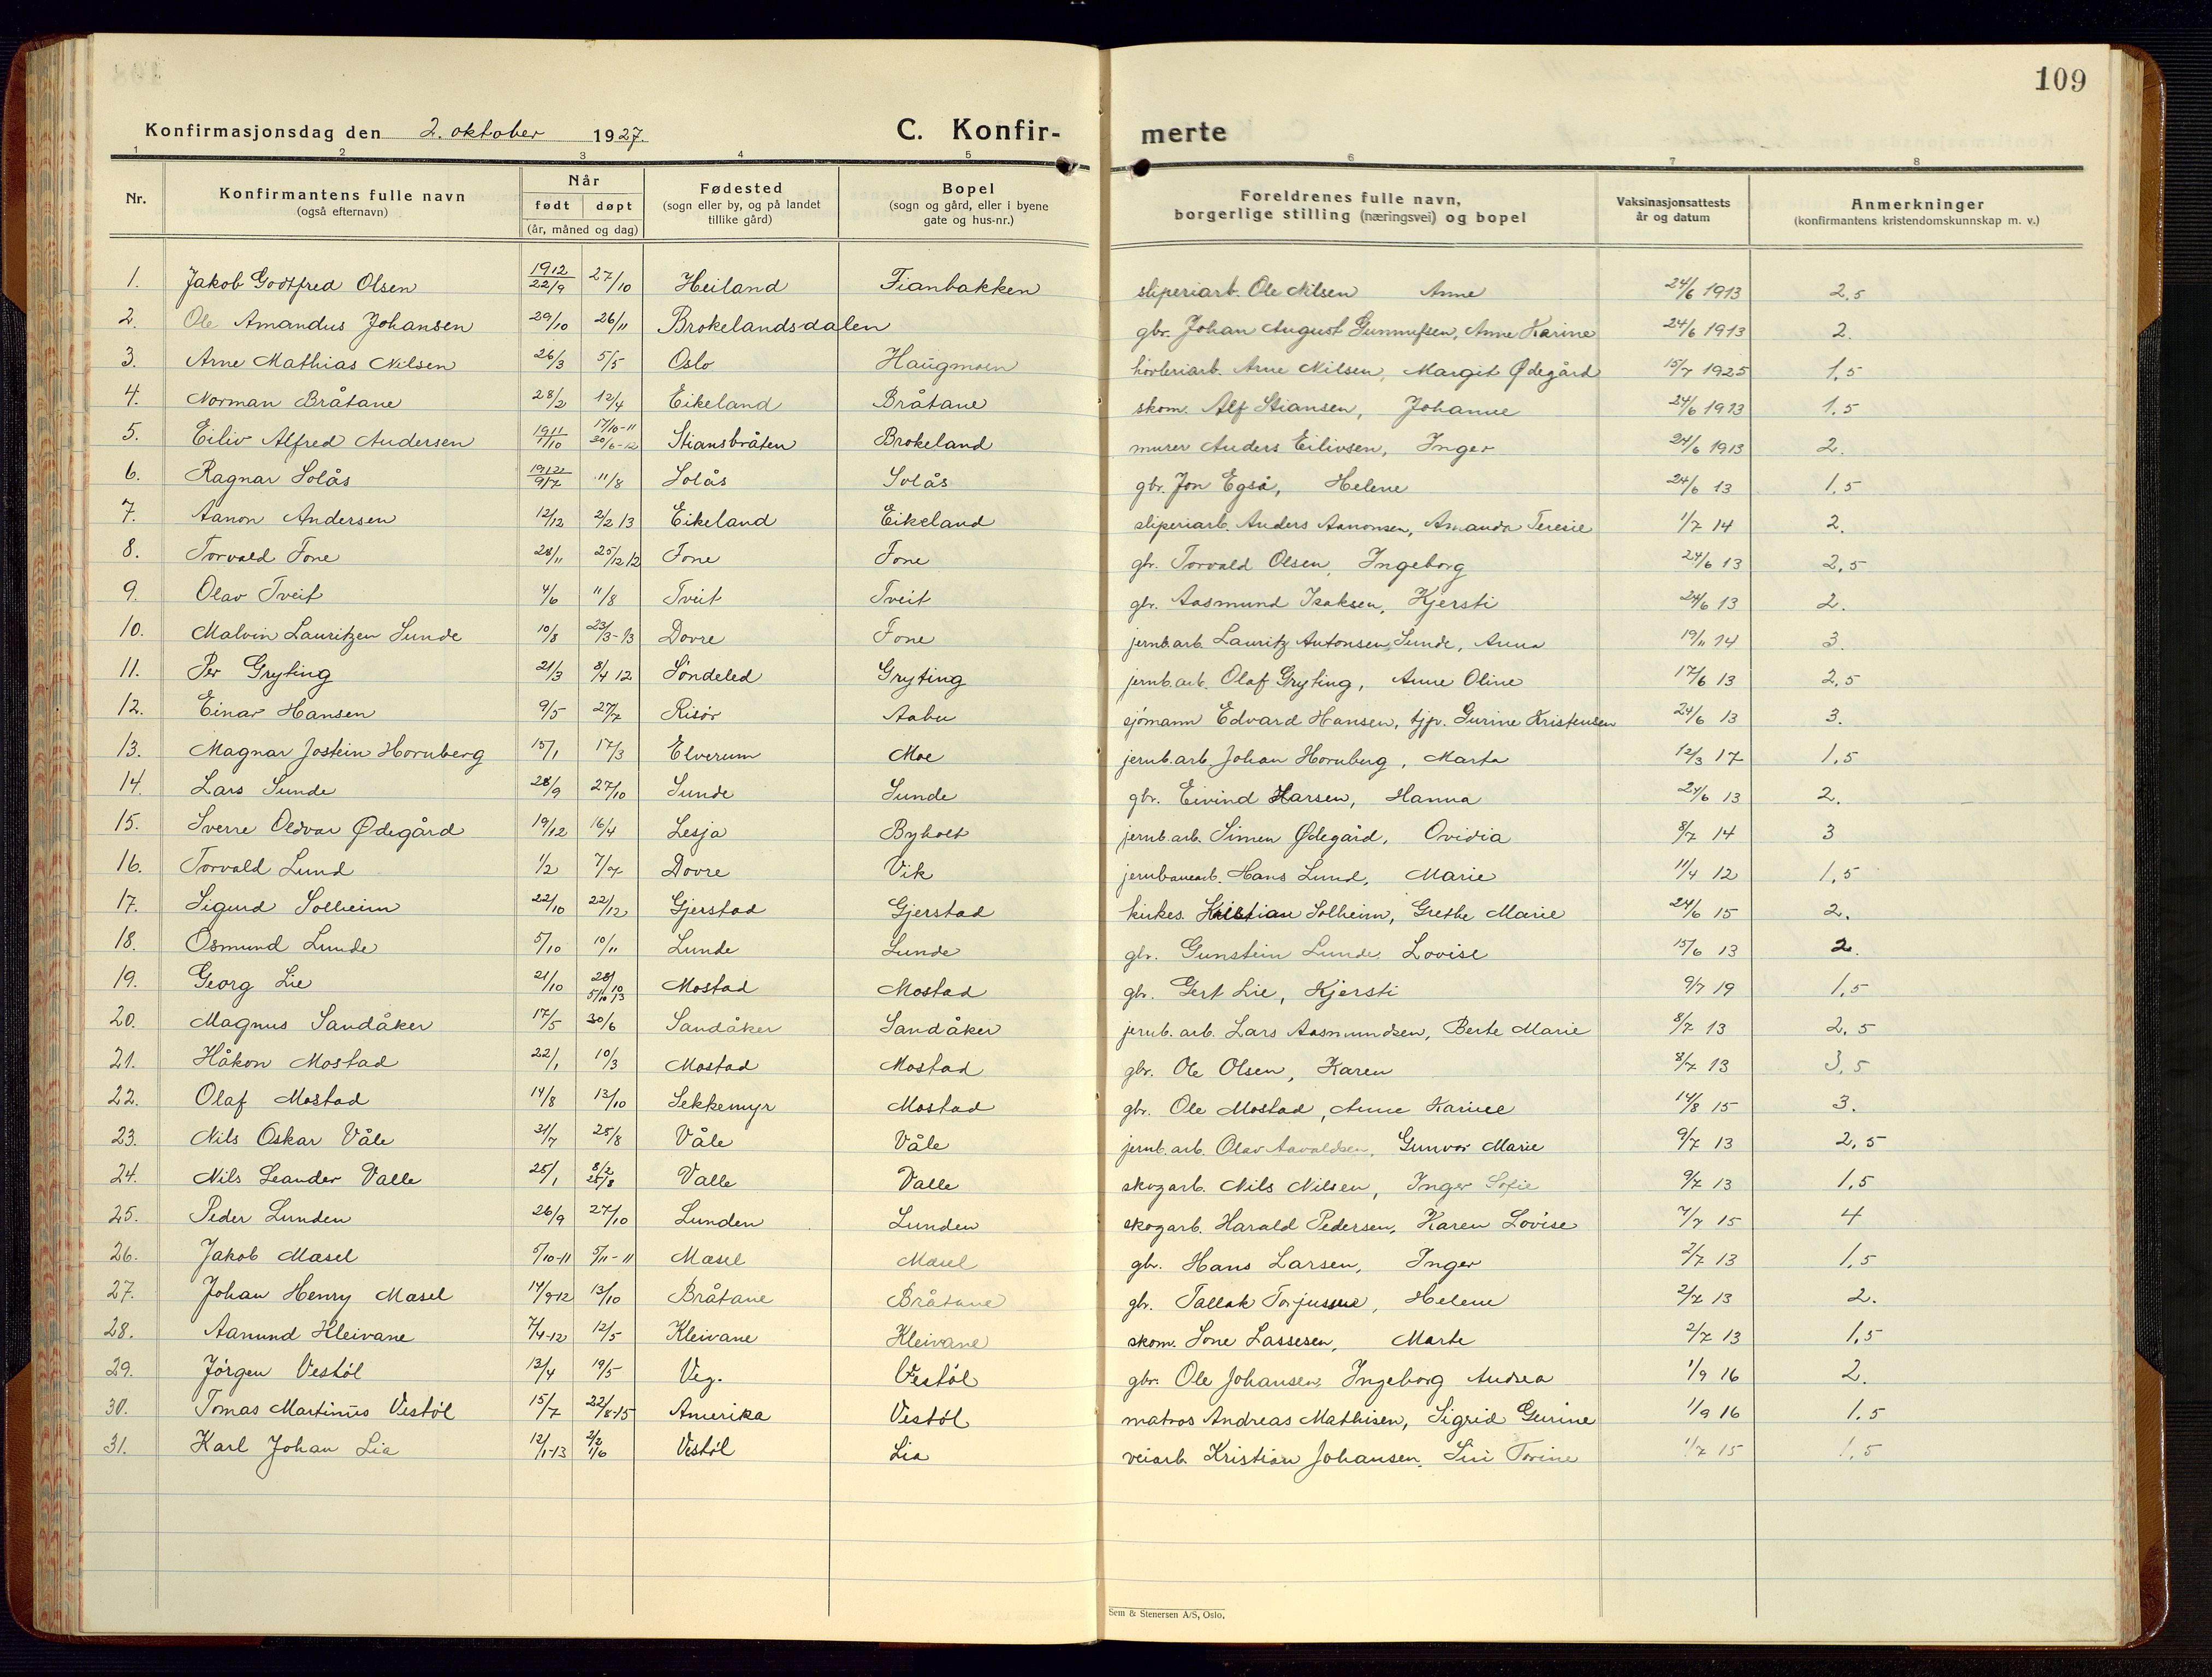 109
Konfirmasjonsdag den 2. oktober 1927. C. Konfirmerte
1 2 3 4 5 6 7 8
Nr. Konfirmantens fulle navn (også efternavn) Når født døpt (år, måned og dag) Fødested (sogn eller by, og på landet tillike gård) Bopel (sogn og gård, eller i byene gate og hus-nr.) Foreldrenes fulle navn, borgerlige stilling (næringsvei) og bopel Vaksinasjonsattests år og datum Anmerkninger (konfirmantens kristendomskunnskap m. v.)
1. Jakob Godtfred Olsen 1912 22/9 27/10 Heiland Fianbakken sliperiarb. Ole Nilsen Anne 24/6 1913 2,5
2. Ole Amandus Johansen 29/10 26/11 Brokelandsdalen gbr. Johan August Gunnufsen, Anne Karine 24/6 1913 2.
3. Arne Mathias Nilsen 26/3 5/5 Oslo Haugmoen høvleriarb. Arne Nilsen, Margit Ødegård 15/7 1925 1,5
4. Norman Bråtane 28/2 12/4 Eikeland Bråtane skom. Alf Stiansen, Johanne 24/6 1913 1.5
5. Eiliv Alfred Andersen 1911 7/10 17/10-11 30/6-12 Stiansbråten Brokeland murer Anders Eilivsen, Inger 24/6 1913 2.
6. Ragnar Solås 1912 9/7 11/8 Solås Solås gbr. Jon Egså, Helene 24/6 13 1,5
7. Aanon Andersen 12/12 2/2 13 Eikeland Eikeland sliperiarb. Anders Aanonsen, Amanda Teresie 1/7 14 2.
8. Torvald Fone 28/11 25/12 12 Fone Fone gbr. Torvald Olsen, Ingeborg 24/6 13 2,5
9. Olav Tveit 4/6 11/8 Tveit Tveit gbr. Aasmund Isaksen, Kjersti 24/6 13 2.
10. Malvin Lauritzen Sunde 10/8 23/3-13 Dovre Fone jernb.arb. Lauritz Antonsen Sunde, Anna 19/11 14 3.
11. Per Gryting 21/3 8/4 12 Søndeled Gryting jernb.arb. Olaf Gryting, Anne Oline 17/6 13 2,5
12. Einar Hansen 9/5 27/7 Risør Aabu sjømann Edvard Hansen, tjp. Gurine Kristensen 24/6 13 3.
13. Magnar Jostein Hornberg 15/1 17/3 Elverum Moe jernb.arb. Johan Hornberg, Marta 12/3 17 1,5
14. Lars Sunde 28/9 27/10 Sunde Sunde gbr. Eivind Larsen, Hanna 24/6 13 2.
15. Sverre Oldvar Ødegård 19/12 16/4 Lesja Byholt jernb.arb. Simen Ødegård, Ovidia 8/7 14 3
16. Torvald Lund 1/2 7/7 Dovre Vik jernbanearb. Hans Lund, Marie 11/4 12 1,5
17. Sigurd Solheim 22/10 22/12 Gjerstad Gjerstad kirkes. Kristian Solheim, Grethe Marie 24/6 15 2.
18. Osmund Lunde 5/10 10/11 Lunde Lunde gbr. Gunstein Lunde, Lovise 15/6 13 2.
19. Georg Lie 21/10 28/10 5/10 13 Mostad Mostad gbr. Gert Lie, Kjersti 9/7 19 1,5
20. Magnus Sandåker 17/5 30/6 Sandåker Sandåker jernb. arb. Lars Aasmundsen, Berte Marie 8/7 13 2,5
21. Håkon Mostad 22/1 10/3 Mostad Mostad gbr. Ole Olsen, Karen 8/7 13 3,5
22. Olaf Mostad 14/8 13/10 Sekkemyr Mostad gbr. Ole Mostad, Anne Karine 14/8 15 3.
23. Nils Oskar Våle 31/7 25/8 Våle Våle jernb.arb. Olav Aavaldsen, Gunvor Marie 9/7 13 2,5
24. Nils Leander Valle 25/1 8/2 25/8 Valle Valle skogarb. Nils Nilsen, Inger Sofie 9/7 13 1,5
25. Peder Lunden 26/9 27/10 Lunden Lunden skogarb. Harald Pedersen, Karen Lovise 7/7 15 4
26. Jakob Masel 5/10-11 5/11-11 Masel Masel gbr. Hans Larsen, Inger 2/7 13 1,5
27. Johan Henry Masel 14/9-12 13/10 Bråtane Bråtane gbr. Tallak Torjussen, Helene 2/7 13 2.
28. Aanund Kleivane 7/4-12 12/5 Kleivane Kleivane skom. Sone Lassesen, Marte 2/7 13 1,5
29. Jørgen Vestøl 13/4 19/5 Veg. Vestøl gbr. Ole Johansen, Ingeborg Andrea 1/9 16 2.
30. Tomas Martinus Vestøl 15/7 22/8-15 Amerika Vestøl matros Andreas Mathisen, Sigrid Gurine 1/9 16 1.5
31. Karl Johan Lia 12/1-13 2/2 1/6 Vestøl Lia veiarb. Kristian Johansen, Siri Torine 1/7 15 1,5
Sem & Stenersen A/S, Oslo.